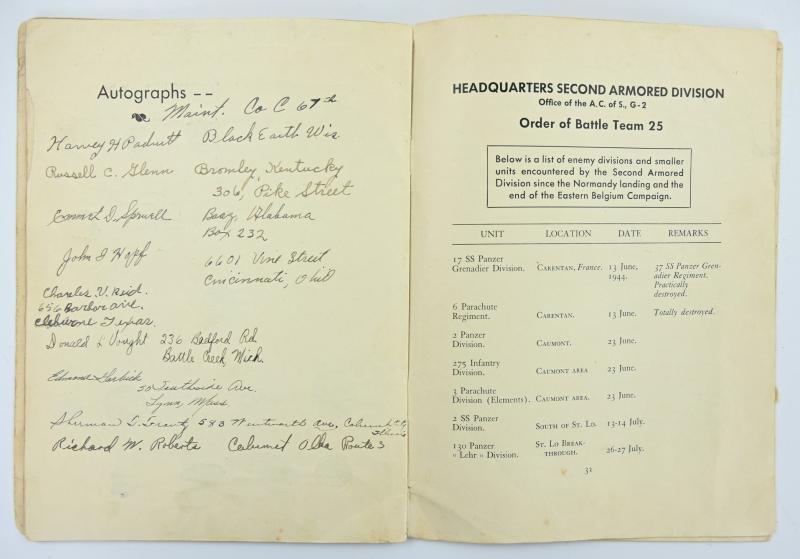 Autographs --
Maint. Co C 67th
Harvey H Padrutt Black Earth Wis.
Russell C. Glenn Bromley, Kentucky
306, Pike Street
Emmit D. Spruell Boaz, Alabama
Box 232
John J Hopf 6601 Vine Street
Cincinnati, Ohio
Charles V. Reid.
656 Barbor ave.
Cleburne Texas.
Donald L Vought 236 Bedford Rd.
Battle Creek Mich.
Edmund
50 Ave.
Lynn, Mass
Sherman D. 583 Wentworth Ave, Calumet City
Illinois
Richard W. Roberts Calumet Okla Route 3
HEADQUARTERS SECOND ARMORED DIVISION
Office of the A.C. of S., G-2
Order of Battle Team 25
Below is a list of enemy divisions and smaller
units encountered by the Second Armored
Division since the Normandy landing and the
end of the Eastern Belgium Campaign.
UNIT LOCATION DATE REMARKS
17 SS Panzer
Grenadier Division. CARENTAN, France. 13 June, 1944. 37 SS Panzer Gren-
adier Regiment.
Practically
destroyed.
6 Parachute
Regiment. CARENTAN. 13 June. Totally destroyed.
2 Panzer
Division. CAUMONT. 23 June.
275 Infantry
Division. CAUMONT AREA 23 June.
3 Parachute
Division (Elements). CAUMONT AREA. 23 June.
2 SS Panzer
Division. SOUTH OF ST. LO. 13-14 July.
130 Panzer
« Lehr » Division. ST. LO BREAK-
THROUGH. 26-27 July.
31